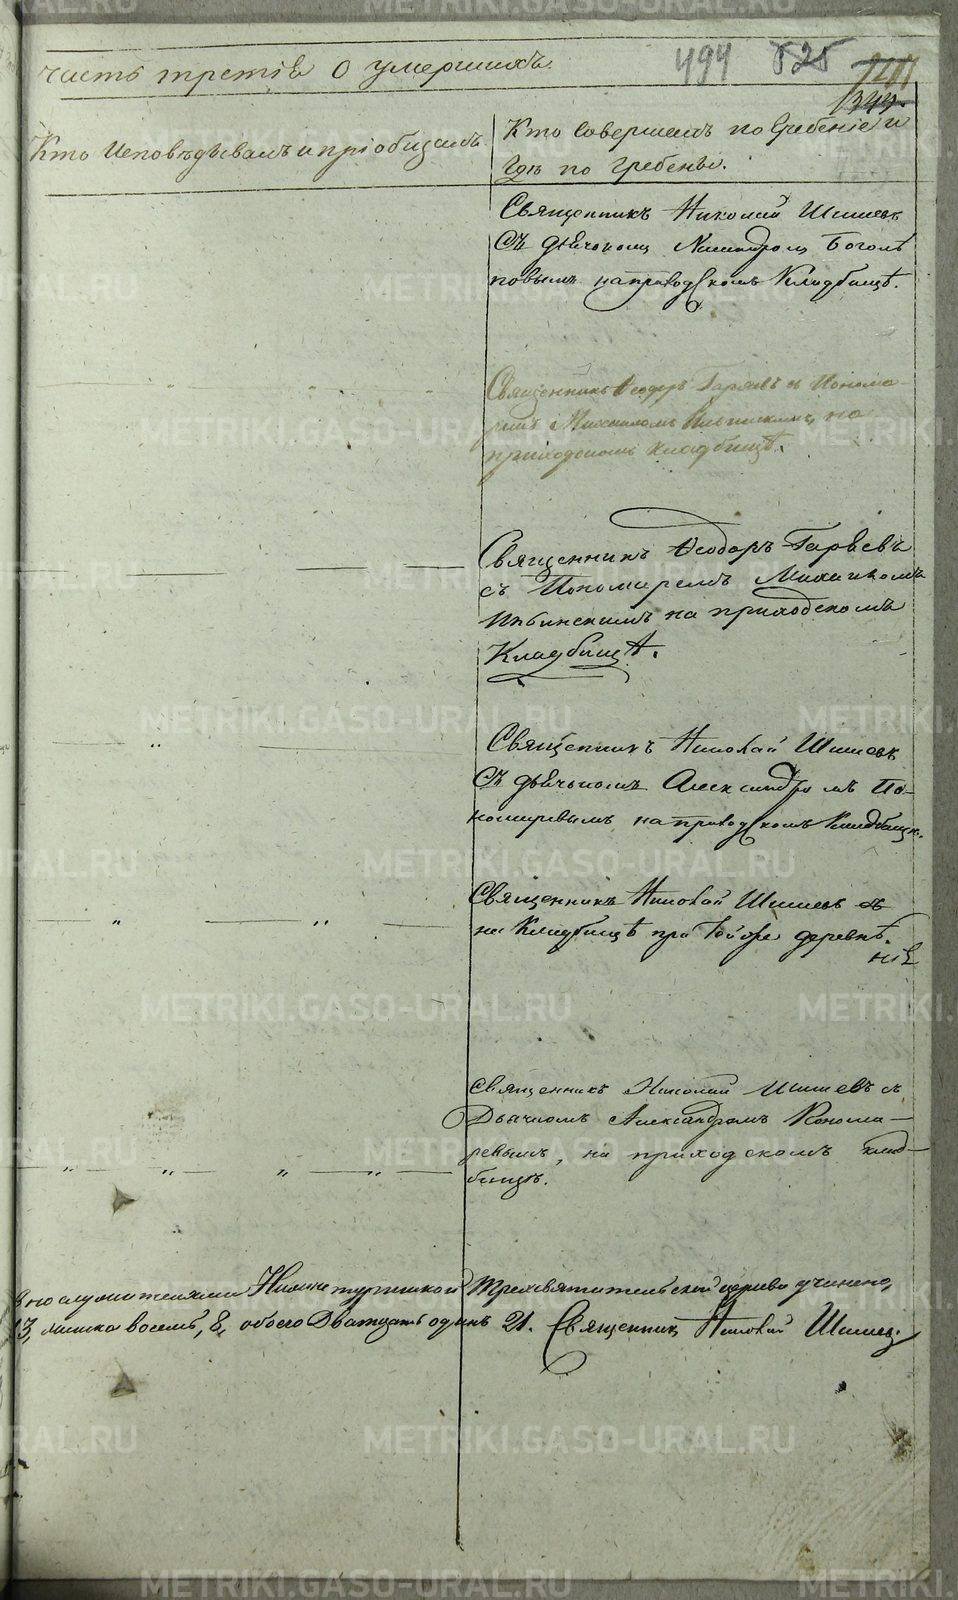 часть третія о умершихъ.
494 525
344.
Кто Исповѣдывалъ и пріобщалъ
Кто Совершалъ погребеніе и
гдѣ погребены.
Священникъ Николай Шишевъ
Съ дьячкомъ
на приходскомъ Кладбищѣ.
Священникъ Ѳеодоръ Гаряевъ съ Понома
ремъ Михаиломъ Ильинскимъ, на
приходскомъ кладбищѣ.
Священникъ Ѳеодоръ Гаряевъ
съ Пономаремъ Михаиломъ
Ильинскимъ на приходскомъ
Кладбищѣ.
Священникъ Николай Шишевъ
Съ дьячькомъ Александромъ По-
номаревымъ на приходскомъ Кладбищѣ.
Священникъ Николай Шишевъ
на Кладбищѣ при деревнѣ.
Священникъ Николай Шишевъ съ
Дьячкомъ Александромъ Понома-
ревымъ, на приходскомъ клад-
бищѣ.
Трехсвятительской церкви учинено,
13, женска восемь, 8, обоего Дватцать одинъ 21. Священникъ Николай Шишевъ
METRIKI.GASO-URAL.RU